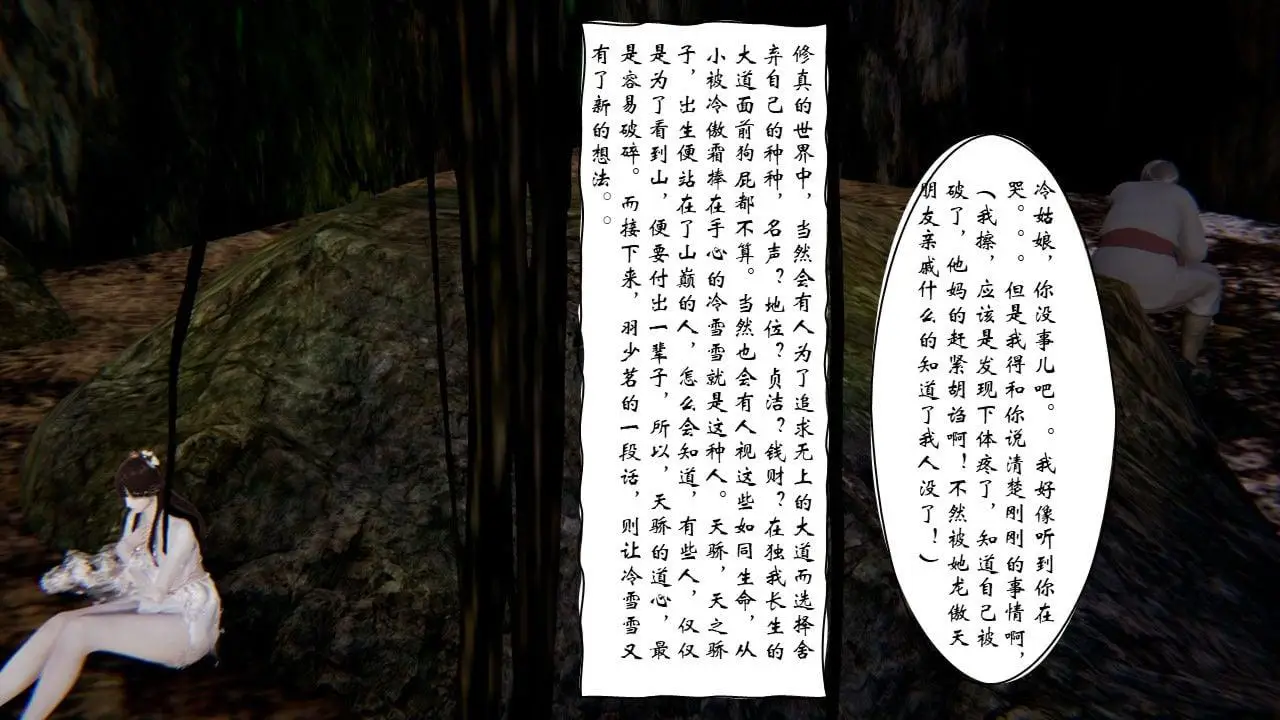 冷姑娘，你没事儿吧。。我好像听到你在
哭。。。但是我得和你说清楚刚刚的事情啊，
（我擦，应该是发现下体疼了，知道自己被
破了，他妈的赶紧胡诌啊！不然被她龙傲天
朋友亲戚什么的知道了我人没了！）
修真的世界中，当然会有人为了追求无上的大道而选择舍
弃自己的种种，名声？地位？贞洁？钱财？在独我长生的
大道面前狗屁都不算。当然也会有人视这些如同生命，从
小被冷傲霜捧在手心的冷雪雪就是这种人。天骄，天之骄
子，出生便站在了山巅的人，怎么会知道，有些人，仅仅
是为了看到山，便要付出一辈子，所以，天骄的道心，最
是容易破碎。而接下来，羽少茗的一段话，则让冷雪雪又
有了新的想法。。